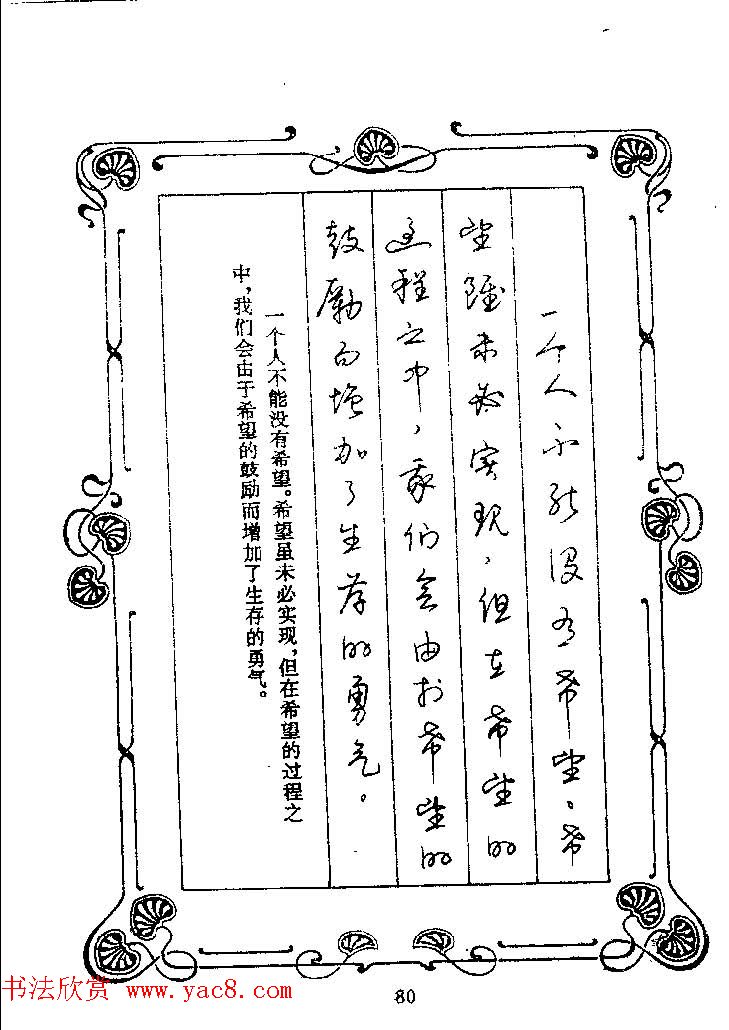 一个人不能没有希望。希
望虽未必实现，但在希望的
过程之中，我们会由于希望的
鼓励而增加了生存的勇气。
一个人不能没有希望。希望虽未必实现，但在希望的过程之
中，我们会由于希望的鼓励而增加了生存的勇气。
80
书法欣赏 www.yac8.com